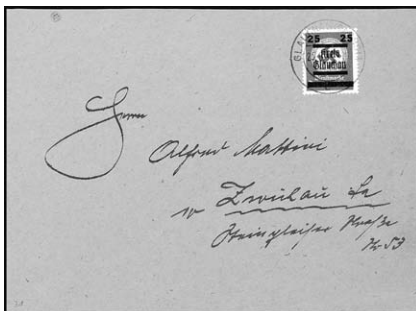 25 25
Kreis
Glauchau
Herrn
Alfred Mattini
in Zwickau Sa
Steinpleißer Straße
Nr 53